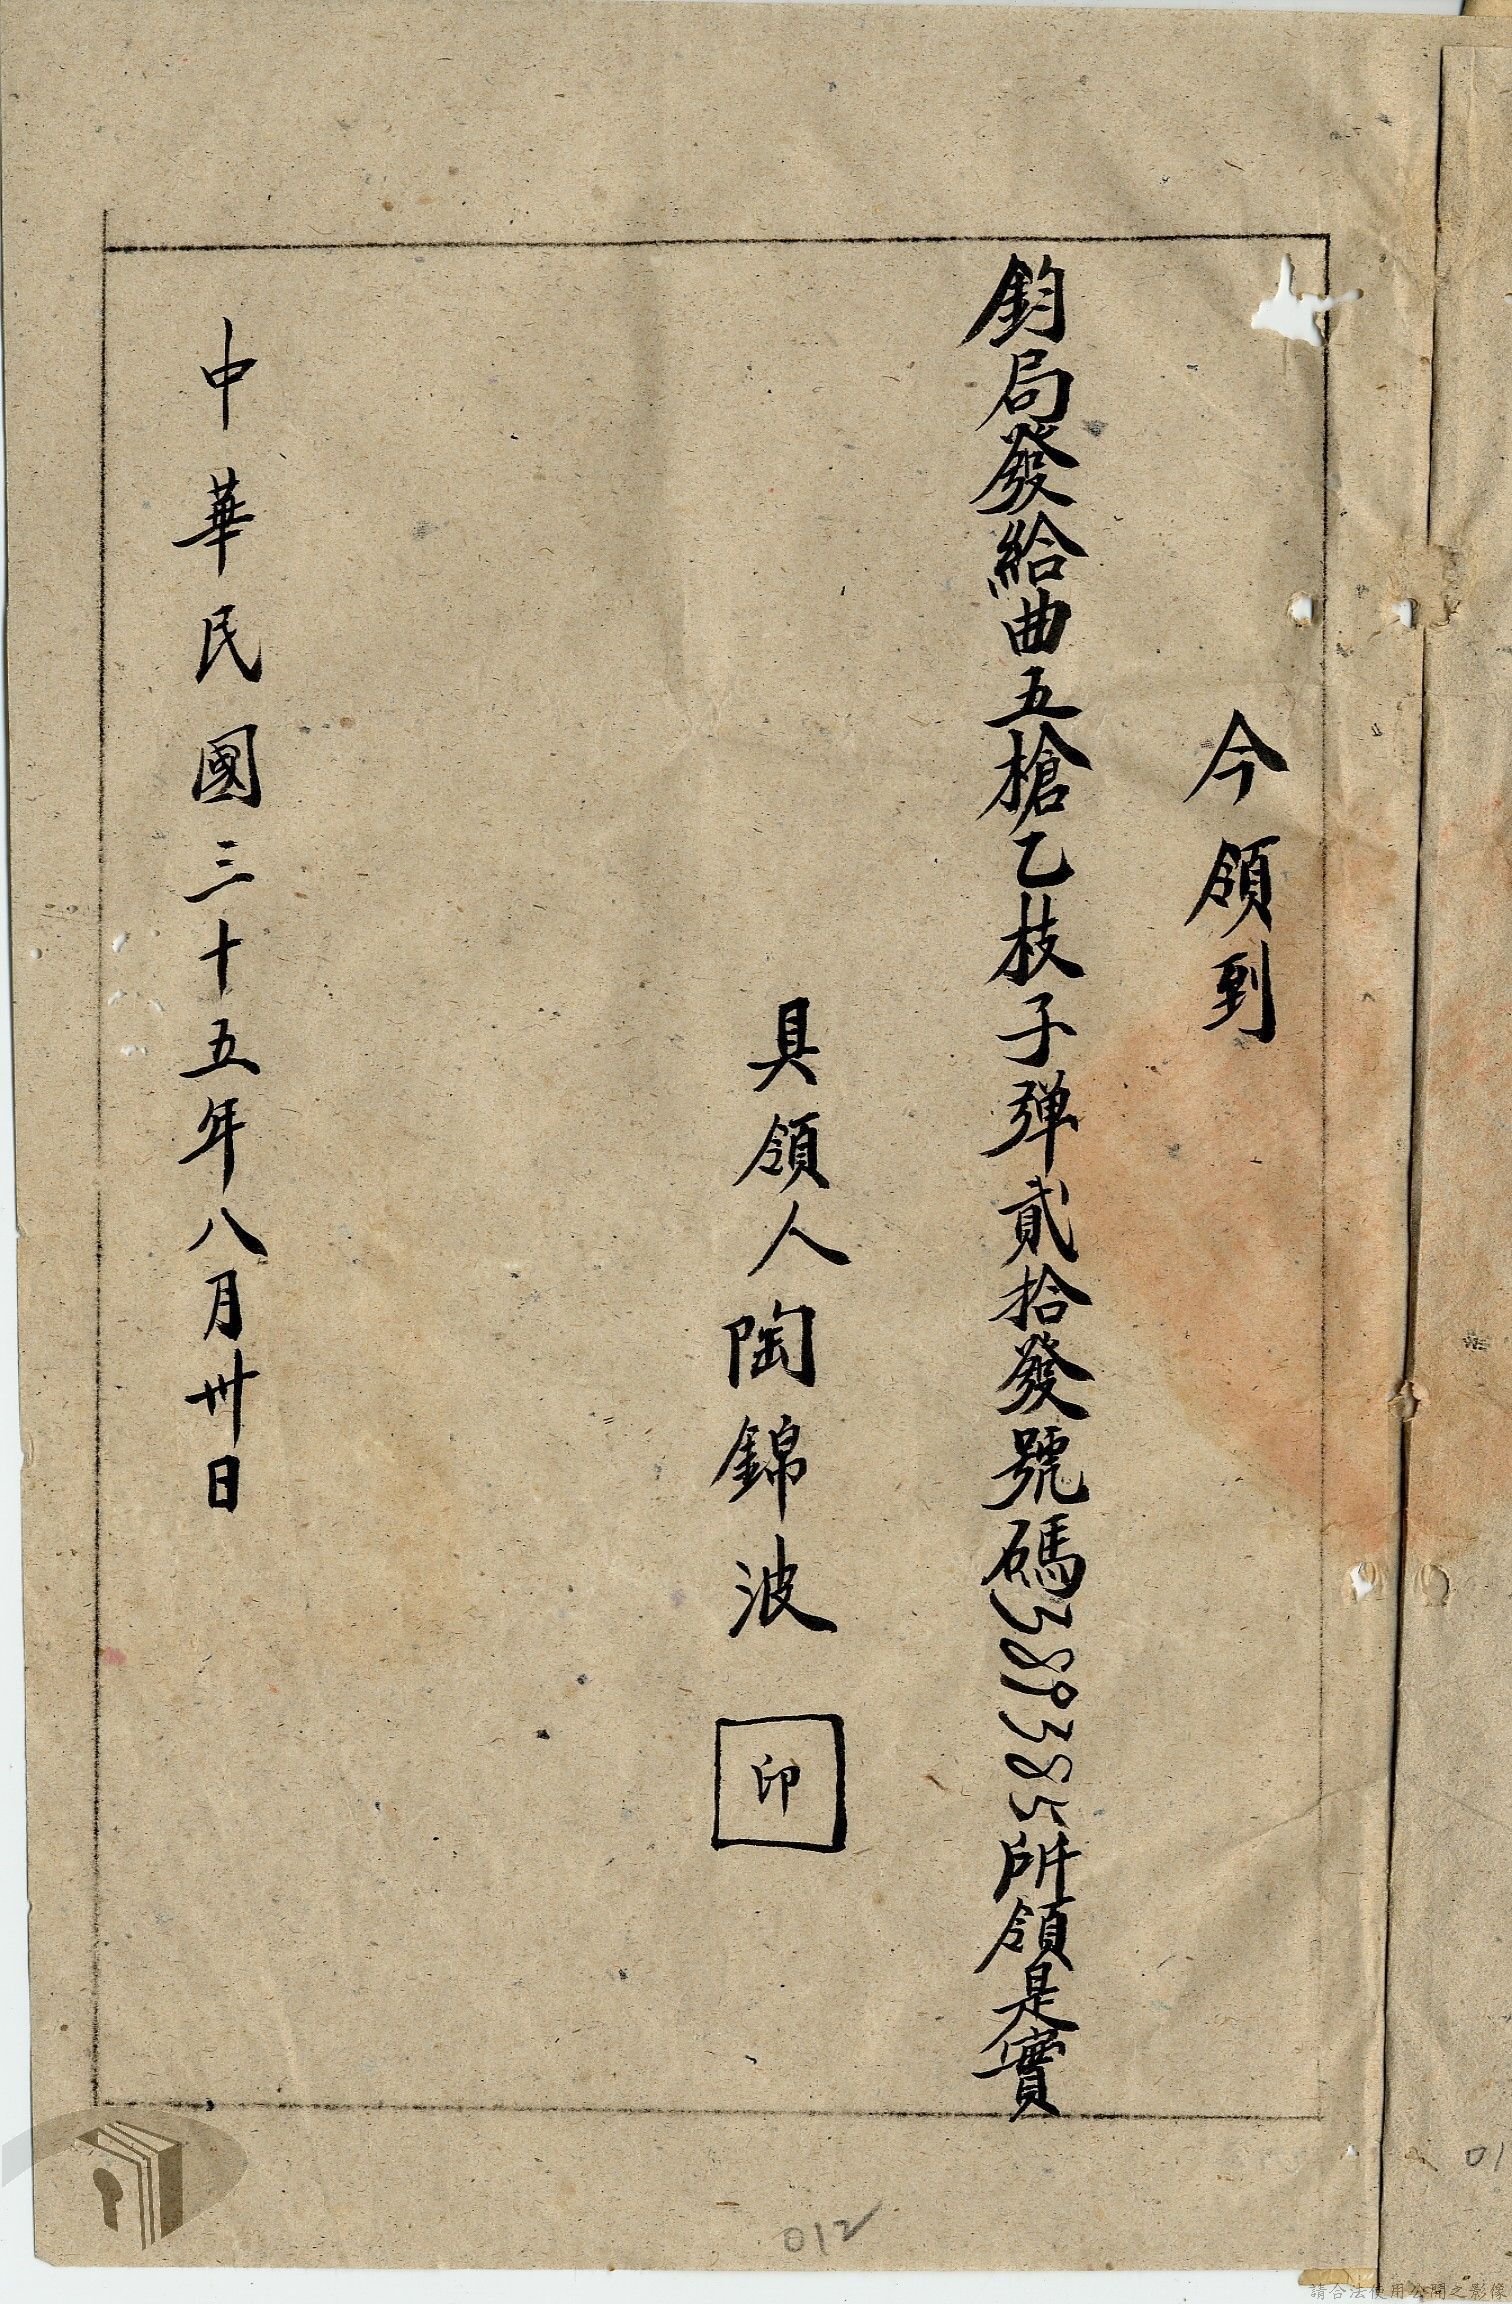 今領到
鈞局發給曲五槍乙枝子弹貳拾發號碼389385所領是實
具領人陶錦波 印
中華民國三十五年八月卅日
012
01
請合法使用公開之影像